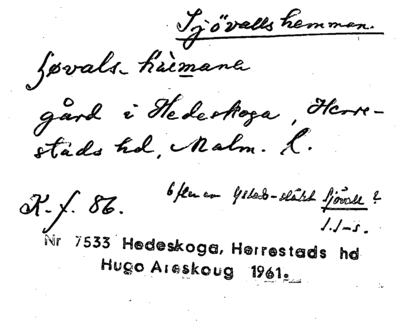 Sjövallshemman.
ʃøvals-hæmana
gård i Hedeskoga, Herre-
stads hd, Malm. l.
K.f. 86.
Ystads-släkt Sjövall?
Nr 7533 Hedeskoga, Herrestads hd
Hugo Areskoug 1961.